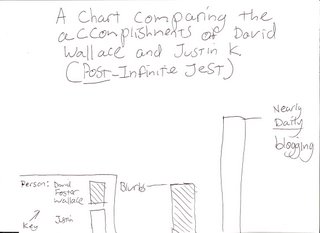 A Chart comparing the
accomplishments of David
Wallace and Justin K
(Post-Infinite Jest)
Nearly
Daily
blogging
Person:
David
Foster
Wallace
Blurbs
Key
Justin